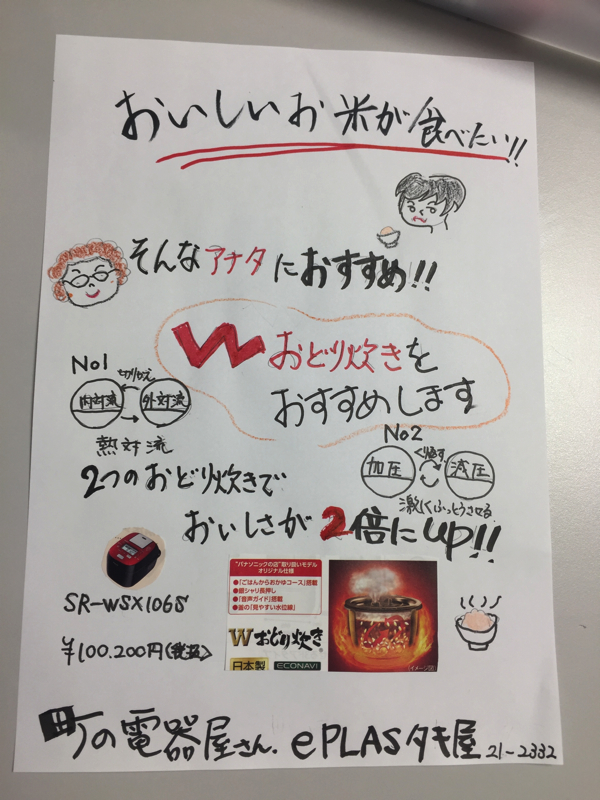 おいしいお米が食べたい!!
そんなアナタにおすすめ!!
Wおどり炊きを
おすすめします
No1
切りかえ
内対流
外対流
熱対流
No2
加圧
くり返す
減圧
激しくふっとうさせる
2つのおどり炊きで
おいしさが2倍にup!!
"パナソニックの店"取り扱いモデル
オリジナル仕様
●「ごはんからおかゆコース」搭載
●銀シャリ長押し
●「音声ガイド」搭載
●釜の「見やすい水位線」
Wおどり炊き
日本製
ECONAVI
(イメージ図)
SR-WSX106S
¥100.200円(税抜)
町の電器屋さん. ePLASタキ屋 21-2332